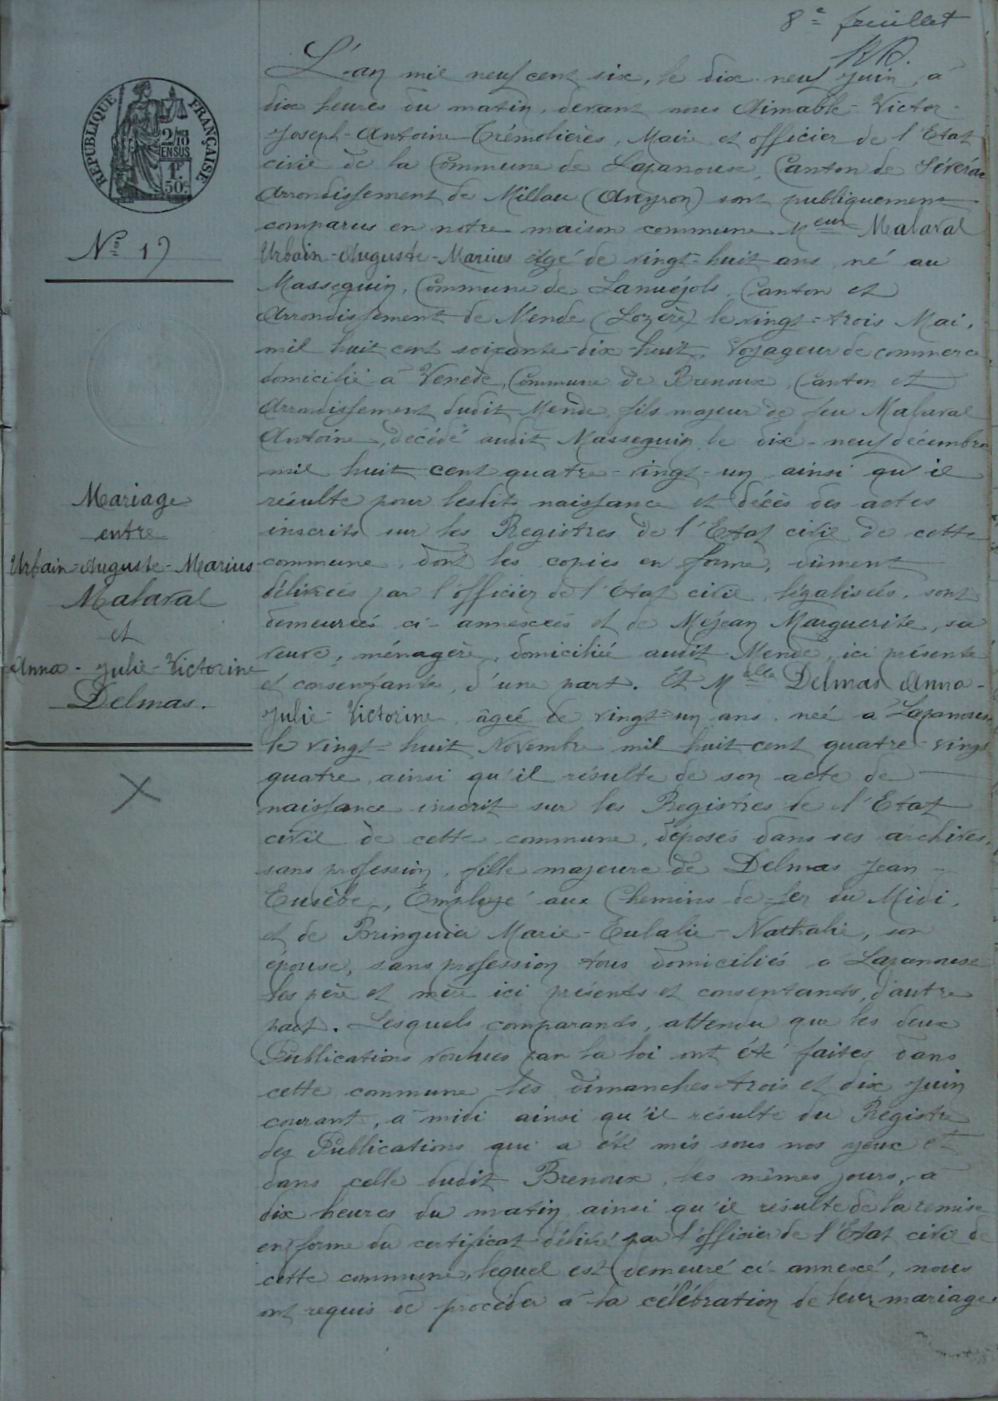 8e feuillet
RÉPUBLIQUE FRANÇAISE
2/10
EN SUS
1F
50c
No 17
Mariage
entre
Urbain-Auguste-Marius
Malaval
et
Anna-Julie-Victorine
Delmas.
L'an mil neuf cent six, le dix-neuf juin, à
dix heures du matin, devant nous Aimable-Victor-
Joseph-Antoine Trémolières, Maire et officier de l'Etat
civil de la Commune de Lapanouse, Canton de Sévérac
Arrondissement de Millau (Aveyron) sont publiquement
comparus en notre maison commune Meur Malaval
Urbain-Auguste-Marius âgé de vingt-huit ans, né au
Masseguin, Commune de Lanuéjols, Canton et
Arrondissement de Mende (Lozère) le vingt-trois Mai,
mil huit cent soixante-dix-huit, Voyageur de commerce
domicilié à Venède, Commune de Brenoux, Canton et
Arrondissement dudit Mende, fils majeur de feu Malaval
Antoine, décédé audit Masseguin le dix-neuf décembre
mil huit cent quatre-vingt-un ainsi qu'il
résulte pour lesdits naissance et décès des actes
inscrits sur les Registres de l'Etat civil de cette
commune, dont les copies en forme, dûment
délivrées par l'officier de l'Etat civil, légalisées, sont
demeurées ci-annexées et de Méjean Marguerite, sa
veuve, ménagère, domiciliée audit Mende, ici présente
et consentante, d'une part. Et Melle Delmas Anna-
Julie-Victorine, âgée de vingt-un ans, née à Lapanouse
le vingt-huit Novembre mil huit cent quatre-vingt
quatre, ainsi qu'il résulte de son acte de
naissance inscrit sur les Registres de l'Etat
civil de cette commune, déposés dans ses archives,
sans profession, fille majeure de Delmas Jean-
Eusèbe, Employé aux Chemins de fer du Midi,
et de Bringuier Marie-Eulalie-Nathalie, son
épouse, sans profession tous domiciliés à Lapanouse
les père et mère ici présents et consentants, d'autre
part. Lesquels comparants, attendu que les deux
Publications voulues par la loi ont été faites dans
cette commune les dimanches trois et dix juin
courant, à midi ainsi qu'il résulte du Registre
des Publications qui a été mis sous nos yeux et
dans celle dudit Brenoux, les mêmes jours, à
dix heures du matin ainsi qu'il résulte de la remise
en forme du certificat délivré par l'officier de l'Etat civil de
cette commune, lequel est demeuré ci-annexé, nous
ont requis de procéder à la célébration de leur mariage